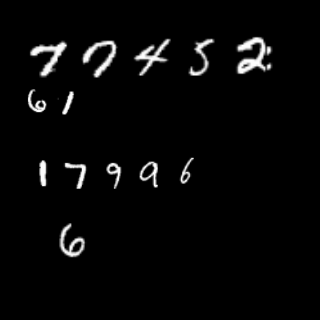 7 7 4 5 2
6 1
1 7 9 9 6
6